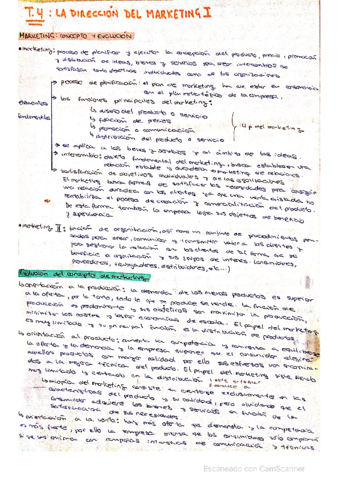 T.4: LA DIRECCIÓN DEL MARKETING I
MARKETING: CONCEPTO Y EVOLUCIÓN
marketing: proceso de planificar y ejecutar la concepción del producto, precio, promoción
y distribución de ideas, bienes y servicios para crear intercambios que
satisfagan tanto objetivos individuales como de las organizaciones
proceso de planificación: el plan de marketing ha de estar en consonancia
con el plan estratégico de la empresa
elementos
las funciones principales del marketing:
diseño del producto o servicio
fundamentales
fijación de precios
4 p del marketing
promoción o comunicación
distribución del producto o servicio
se aplica a los bienes y servicios y al ámbito de las ideas
intercambio: objeto fundamental del marketing, busca establecer una
relación estable y duradera marketing de relaciones
satisfacción de objetivos individuales y de las organizaciones
El marketing busca formas de satisfacer las necesidades para conseguir
una relación duradera con los clientes, ya que una venta aislada no
rentabiliza el proceso de creación y comercialización del producto.
De esta forma también la empresa logra sus objetivos de beneficio
y supervivencia
marketing II: función de organización, así como un conjunto de procedimientos
para crear, comunicar y valor a los clientes y
para gestionar la relación con los clientes de tal forma que se
beneficie a organización y sus grupos de interés (accionistas,
proveedores, trabajadores, distribuidores, etc...)
Evolución del concepto de marketing
orientación a la producción: la demanda de los productos es superior
a la oferta, por lo tanto, todo lo que se produce se vende. La función de
producción es predominante y sus objetivos son maximizar la producción,
minimizar los costes y lograr economías de escala. El papel del marketing
es muy limitado y su principal función es la distribución de productos
orientación al producto: aumenta la competencia y comienza a equilibrarse
la oferta y la demanda, y la empresa supone que el consumidor elige
aquellos productos con mayor calidad por ello sus esfuerzos van encamina-
dos a la mejora técnica del producto. El papel del marketing sigue siendo
muy limitado y centrado en la distribución
miopía del marketing: consiste en centrarse exclusivamente en las
características del producto y su calidad, pero olvidando que el
consumidor adquiere los bienes y servicios en función de la
satisfacción de sus necesidades
orientación a la venta: hay más oferta que demanda y la competencia
es más fuerte, por ello la empresa piensa que los consumidores solo comprarán
si se les anima con campañas intensivas de comunicación y técnicas
Escaneado con CamScanner